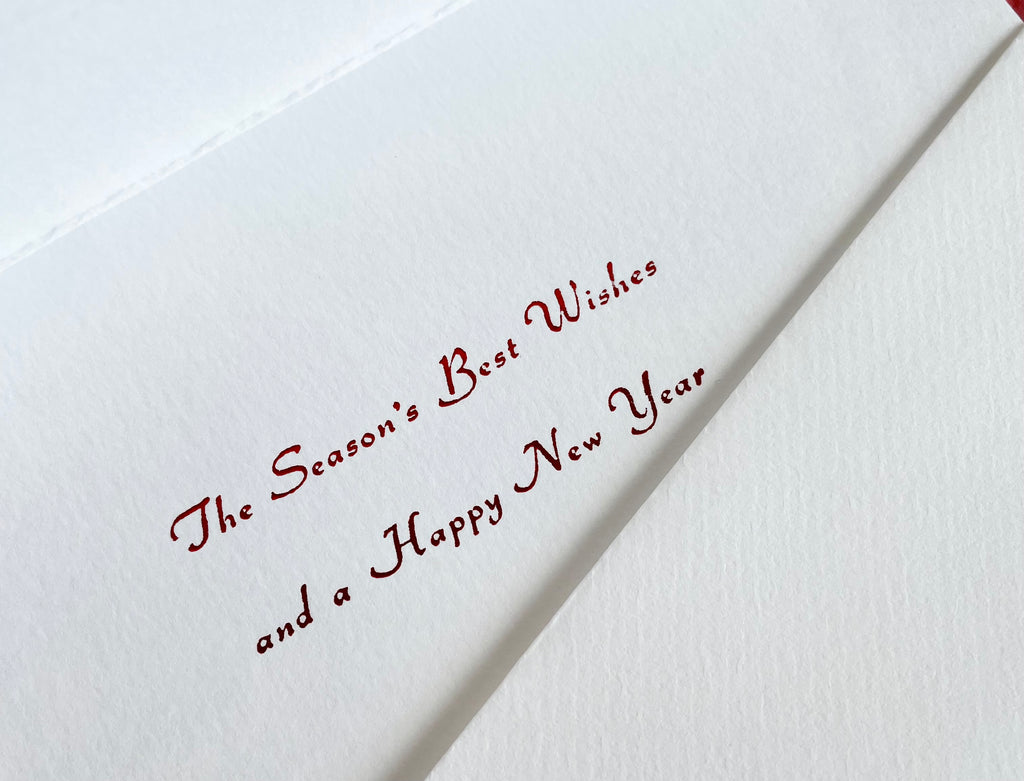 The Season's Best Wishes
and a Happy New Year